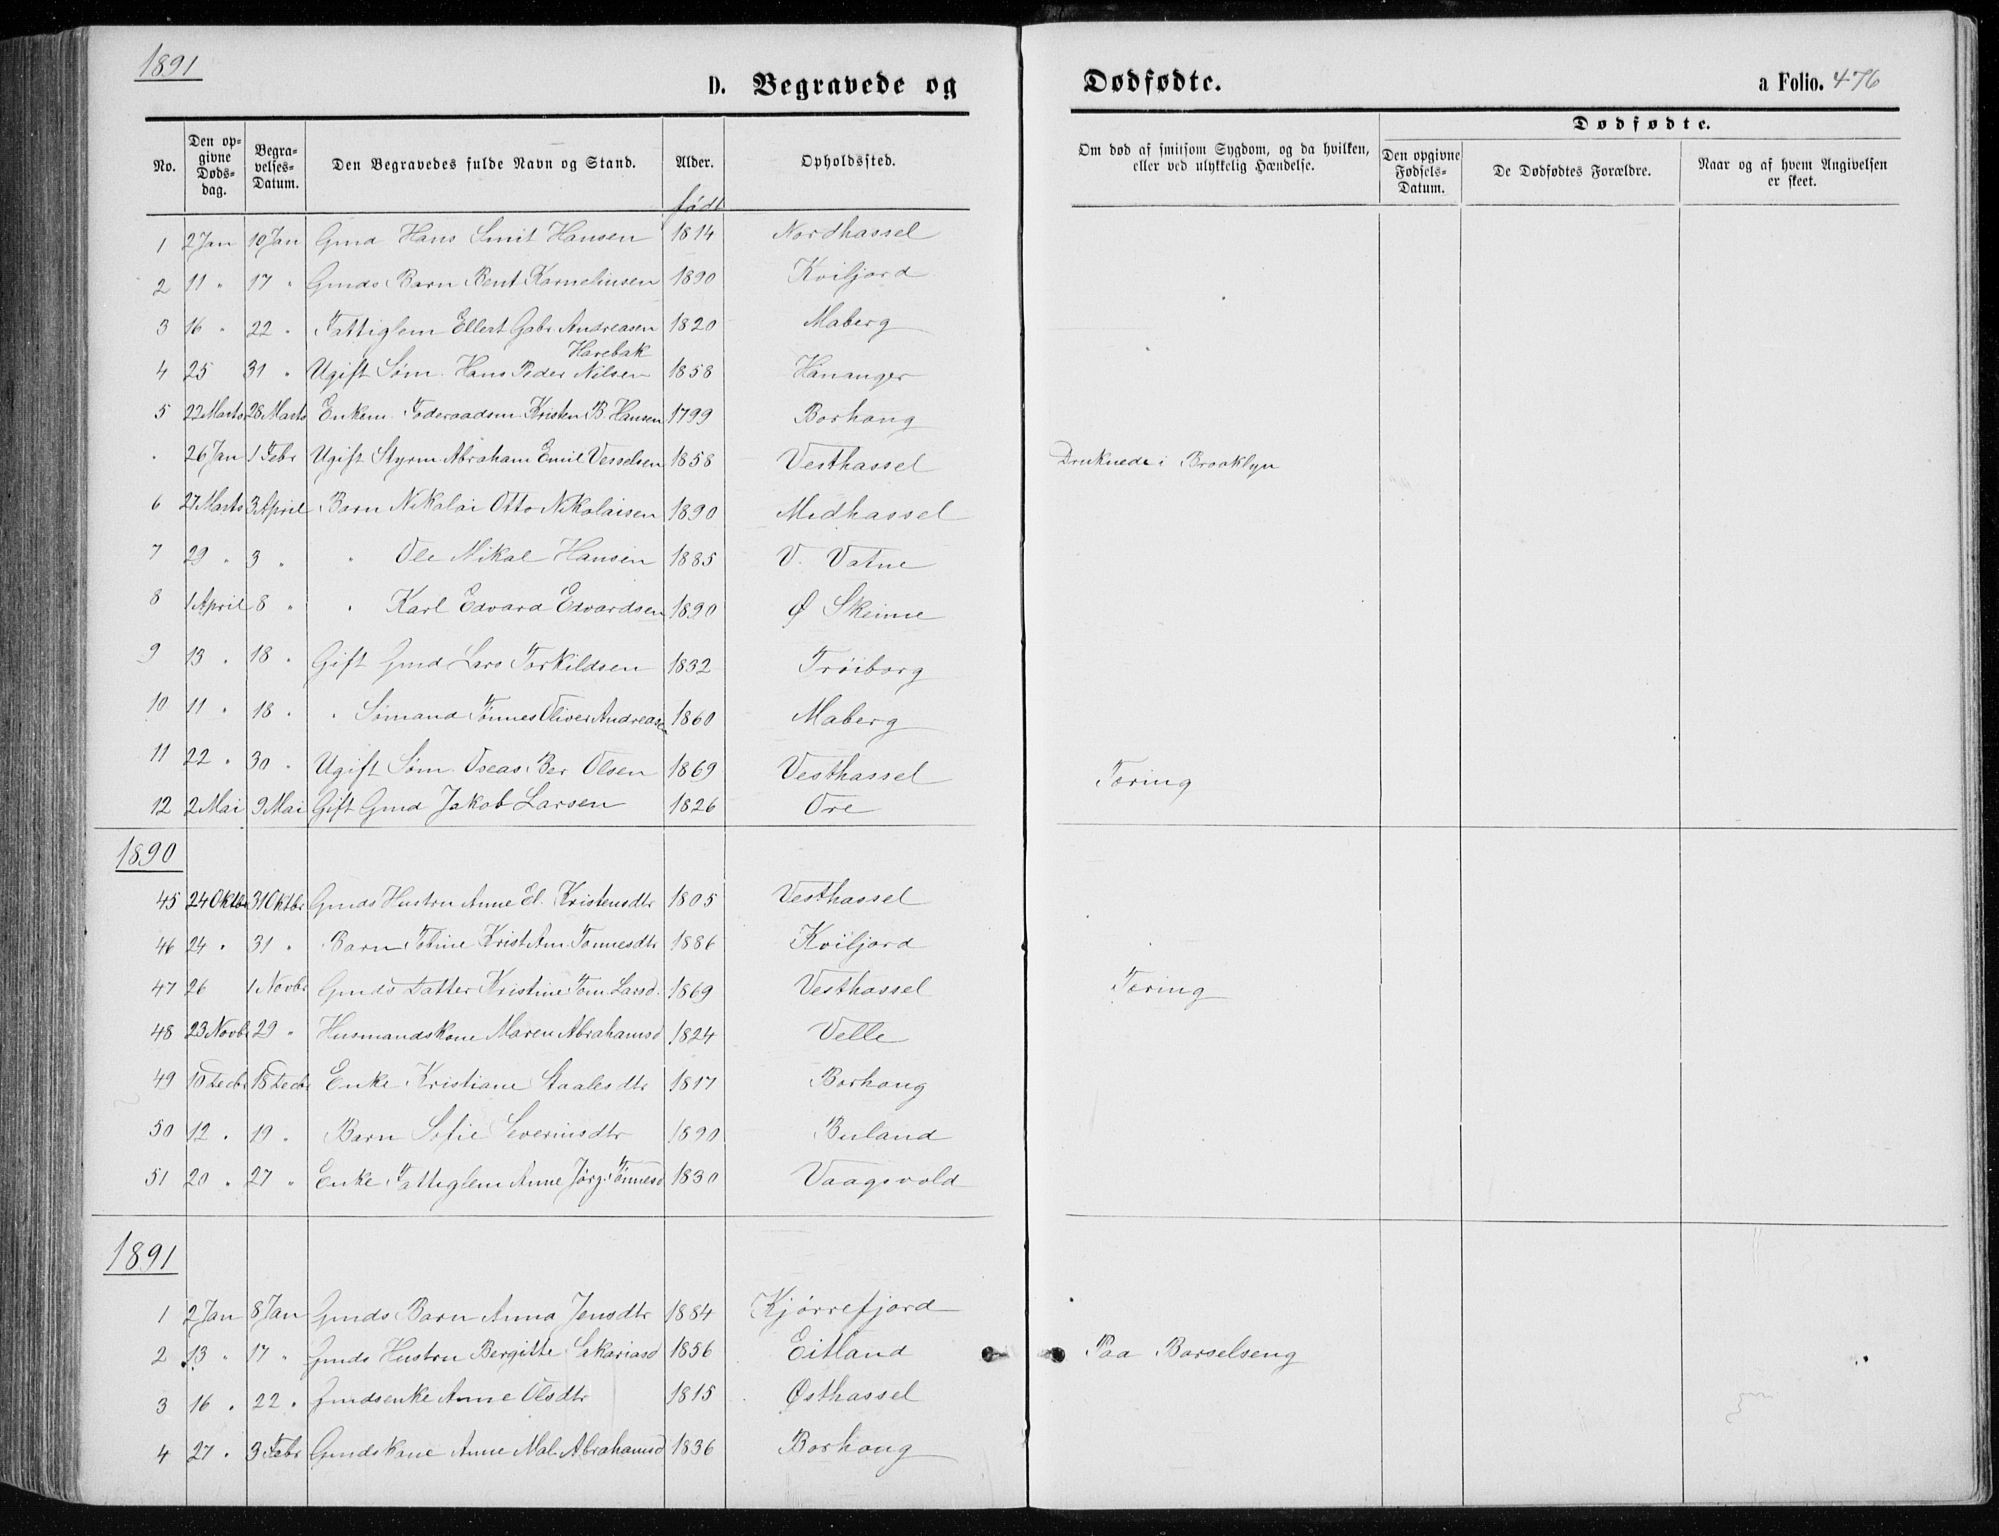 1891
D. Begravede og Dødfødte. a Folio. 476
No. Den opgivne Dødsdag. Begravelses-Datum. Den Begravedes fulde Navn og Stand. Alder. Opholdssted. Om død af smitsom Sygdom, og da hvilken, eller ved ulykkelig Hændelse. Dødfødte. Den opgivne Fødsels-Datum. De Dødfødtes Forældre. Naar og af hvem Angivelsen er skeet.
født
1 2 Jan 10 Jan Gmd Hans Smit Hansen 1814 Nordhassel
2 11 " 17 " Gmds Barn Bent Kornelinsen 1890 Kviljord
3 16 " 22 " Fattiglem Ellert Gabr Andreasen 1820 Maberg
Harebak
4 25 31 " Ugift Søm. Hans Peder Nilsen 1858 Hananger
5 22 Marts 28 Marts Enkem. Føderaadsm Kristen B. Hansen 1799 Borhaug
" 26 Jan 1 Febr Ugift Styrm Abraham Emil Vesselsen 1858 Vesthassel Druknede i Brooklyn
6 27 Marts 3 April Barn Nikolai Otto Nikolaisen 1890 Midhassel
7 29 " 3 " " Ole Mikal Hansen 1885 V. Vatne
8 1 April 8 " " Karl Edvard Edvardsen 1890 Ø Skeime
9 13 " 18 " Gift Gmd Lars Torkildsen 1832 Trøiborg
10 11 " 18 " " Sømand Tønnes Oliver Andreasen 1860 Maberg
11 22 " 30 " Ugift Søm. Oseas Ber Olsen 1869 Vesthassel Tæring
12 2 Mai 9 Mai Gift Gmd Jakob Larsen 1826 Ore
1890
45 24 Oktbr 31 Oktbr Gmds Hustru Anne El. Kristensdtr 1805 Vesthassel
46 24 " 31 " Barn Tobine Krist Am Tønnesdtr 1886 Kviljord
47 26 1 Novbr Gmds Datter Kristine Tom. Larsd. 1869 Vesthassel Tæring
48 23 Novbr 29 " Husmandskone Maren Abrahamsd 1824 Velle
49 10 Decbr 18 Decbr Enke Kristiane Staalesdtr 1817 Borhaug
50 12 " 19 " Barn Sofie Severinsdtr 1890 Buland
51 20 " 27 " Enke Fattiglem Anne Jørg. Tønnesd 1830 Vaagsvold
1891
1 2 Jan 8 Jan Gmds Barn Anna Jensdtr 1884 Kjørrefjord
2 13 " 17 " Gmds Hustru Bergitte Sekariasd 1856 Eitland Paa Barselseng
3 16 " 22 " Gmdsenke Anne Olsdtr 1815 Østhassel
4 27 " 3 Febr Gmdskone Anne Mal. Abrahamsd 1836 Borhaug